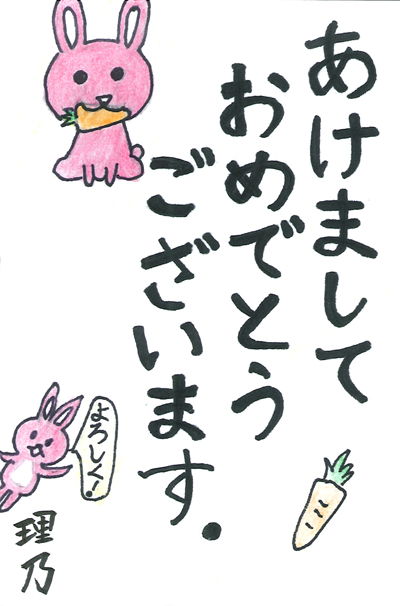 あけまして
おめでとう
ございます.
よろしく!
理乃